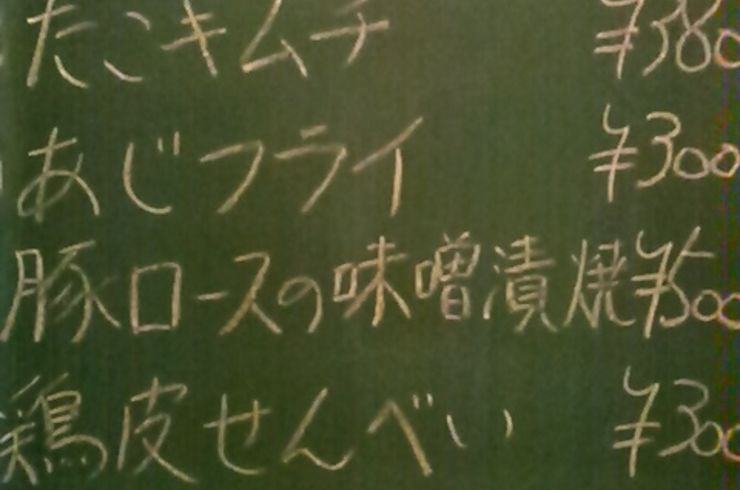 たこキムチ ¥380
あじフライ ¥300
豚ロースの味噌漬焼 ¥500
鶏皮せんべい ¥300